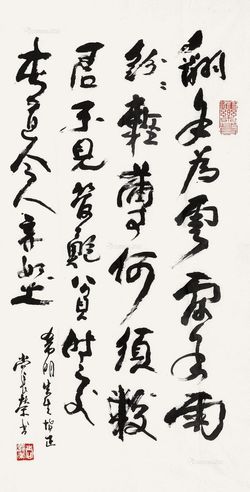 翻手為雲覆手雨
紛紛輕薄何須數
君不見管鮑貧時交
此道今人棄如土
希明先生指正